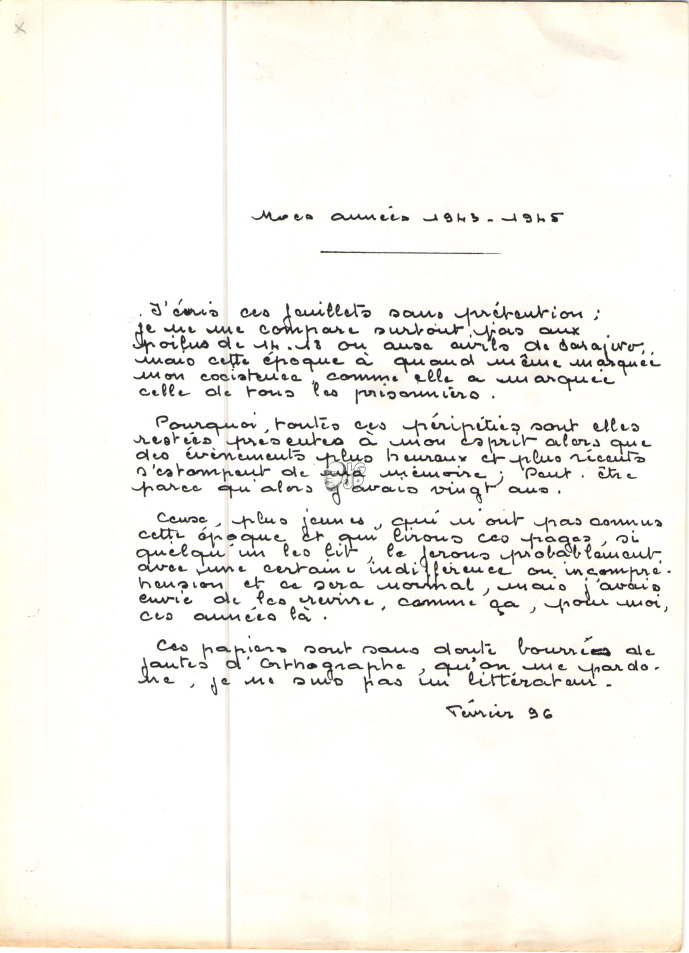 Mes années 1943-1945
J'écris ces feuillets sans prétention ;
je ne me compare surtout pas aux
poilus de 14.18 ou aux civils de Sarajevo,
mais cette époque à quand même marquée
mon existence, comme elle a marquée
celle de tous les prisonniers.
Pourquoi, toutes ces péripéties sont elles
restées présentes à mon esprit alors que
des évènements plus heureux et plus récents
s'estompent de ma mémoire ; Peut-être
parce qu'alors j'avais vingt ans.
Ceuse, plus jeunes, qui n'ont pas connus
cette époque et qui lirons ces pages, si
quelqu'un les lit, le ferons probablement
avec une certaine indifférence ou incompré-
hension et ce sera normal, mais j'avais
envie de les revivre, comme ça, pour moi,
ces années là.
Ces papiers sont sans doute bourrés de
fautes d'Orthographe, qu'on me pardo-
ne, je ne suis pas un littérateur.
Février 96